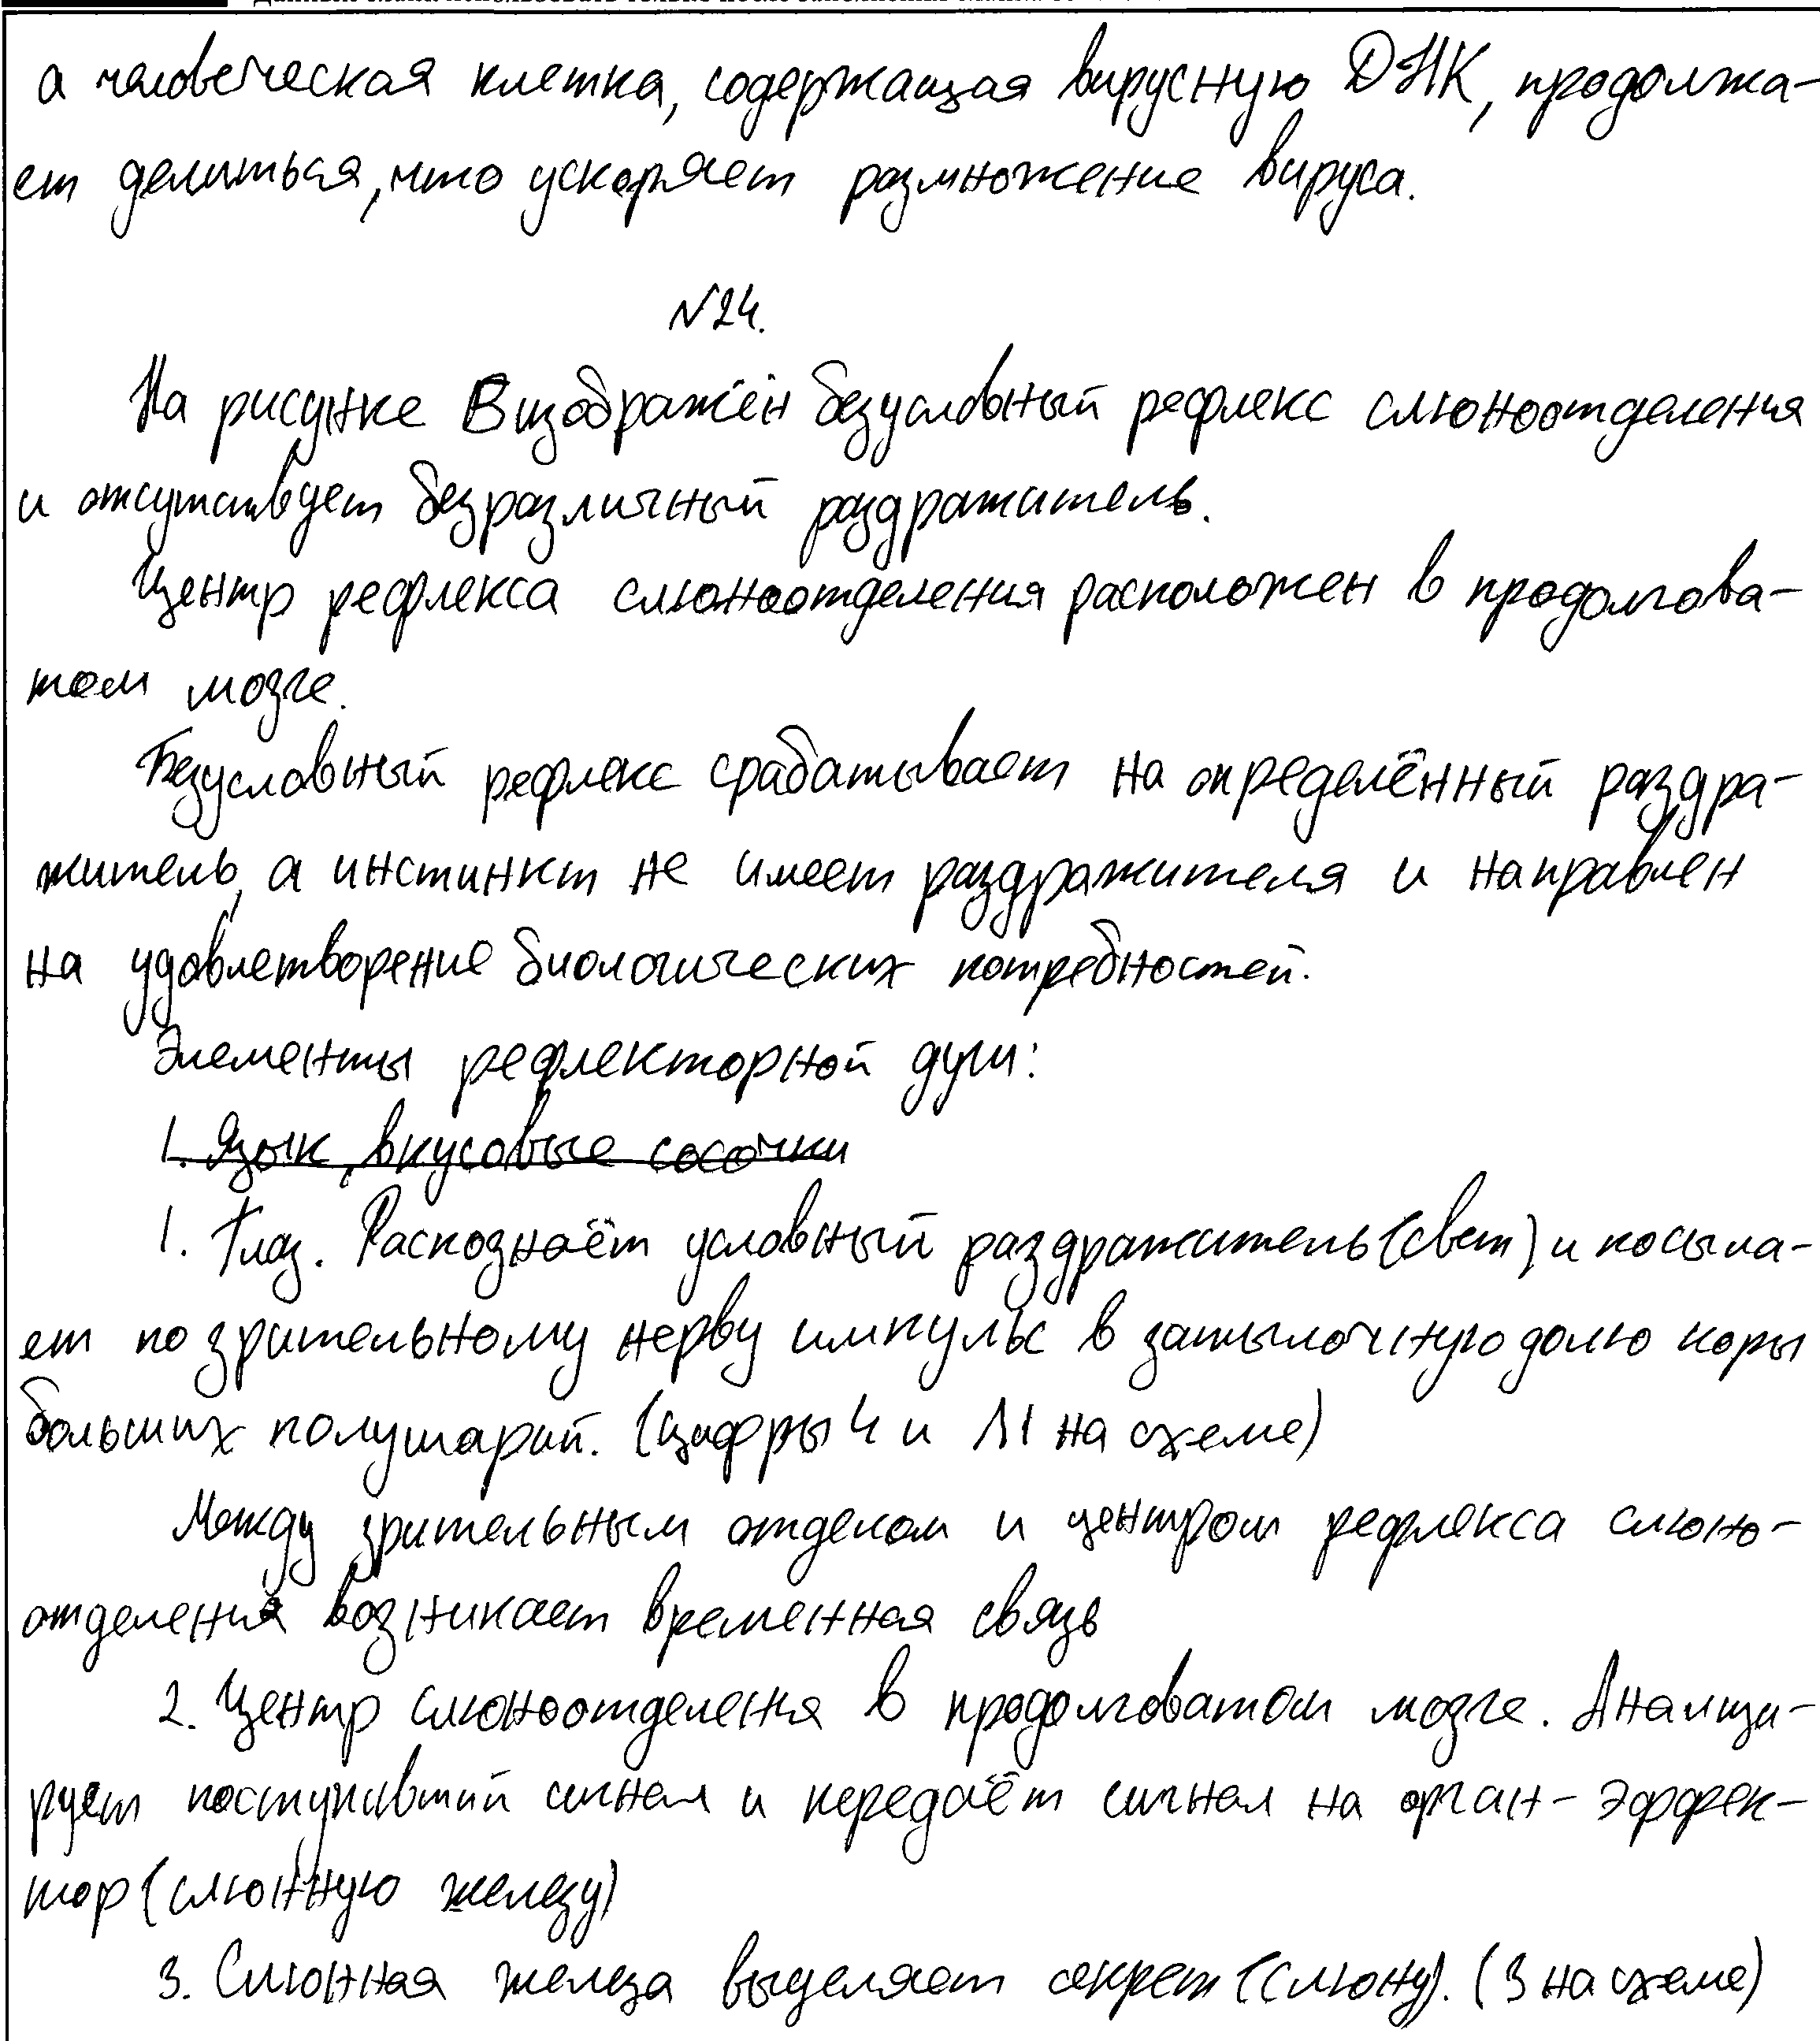 а человеческая клетка, содержащая вирусную ДНК, продолжа-
ет делиться, что ускоряет размножение вируса.
№24.
На рисунке В изображён безусловный рефлекс слюноотделения
и отсутствует безразличный раздражитель.
Центр рефлекса слюноотделения расположен в продолгова-
том мозге.
Безусловный рефлекс срабатывает на определённый раздра-
житель, а инстинкт не имеет раздражителя и направлен
на удовлетворение биологических потребностей.
Элементы рефлекторной дуги:
1. Язык, вкусовые сосочки
1. Глаз. Распознаёт условный раздражитель (свет) и посыла-
ет по зрительному нерву импульс в затылочную долю коры
больших полушарий. (Цифры 4 и 11 на схеме)
Между зрительным отделом и центром рефлекса слюно-
отделения возникает временная связь
2. Центр слюноотделения в продолговатом мозге. Анализи-
рует поступивший сигнал и передаёт сигнал на орган-эффек-
тор (слюнную железу)
3. Слюнная железа выделяет секрет (слюну). (3 на схеме)